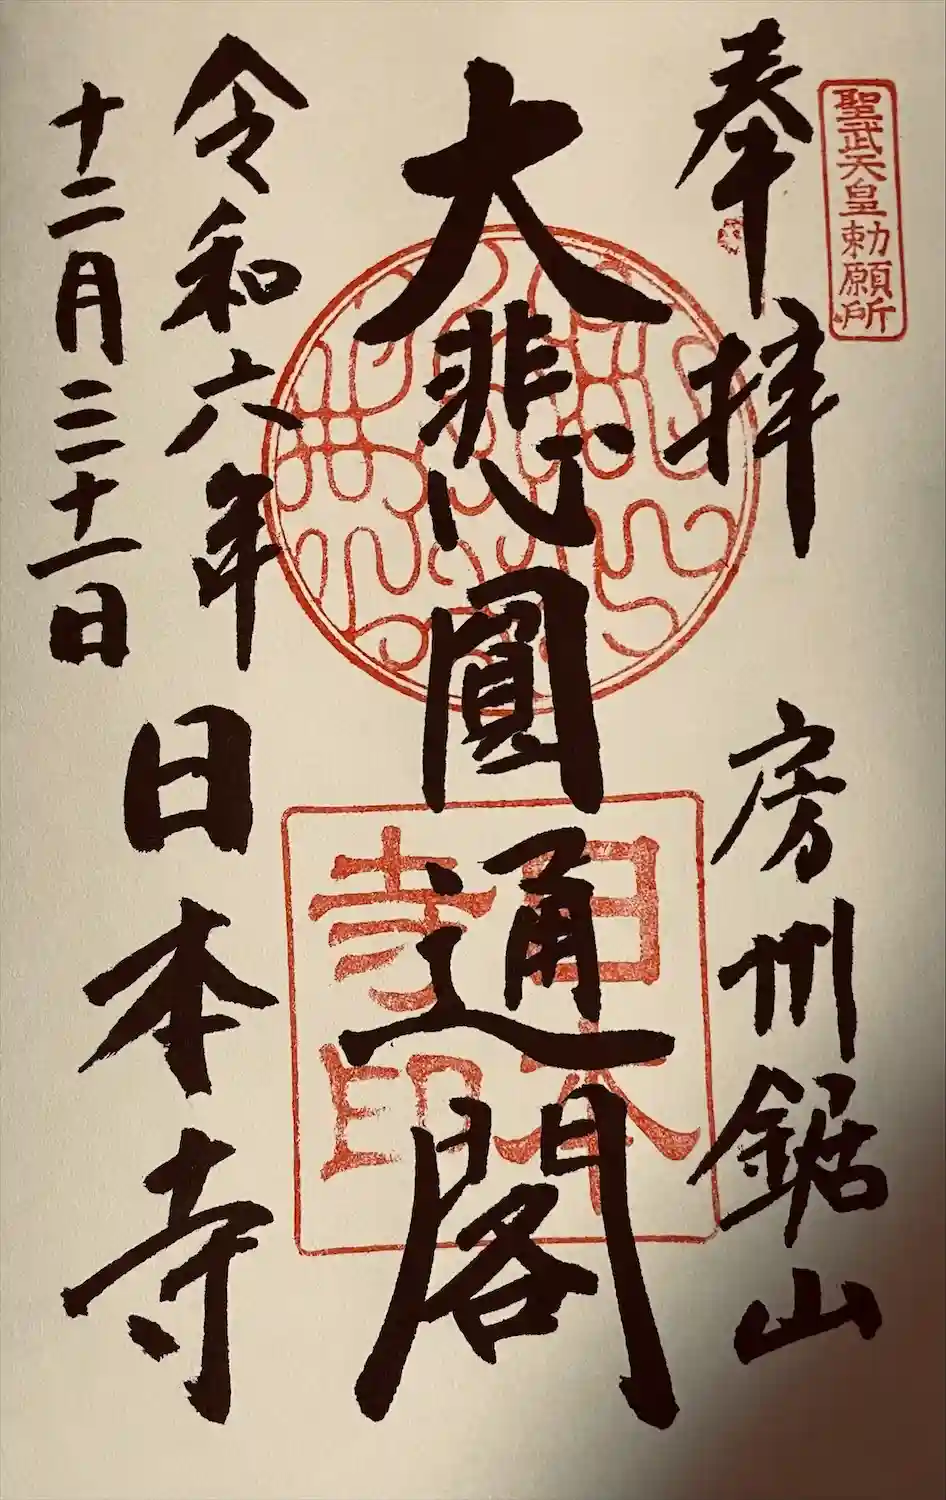 聖武天皇勅願所
奉拝
房州鋸山
大悲圓通閣
日本寺印
令和六年
十二月二十一日
日本寺